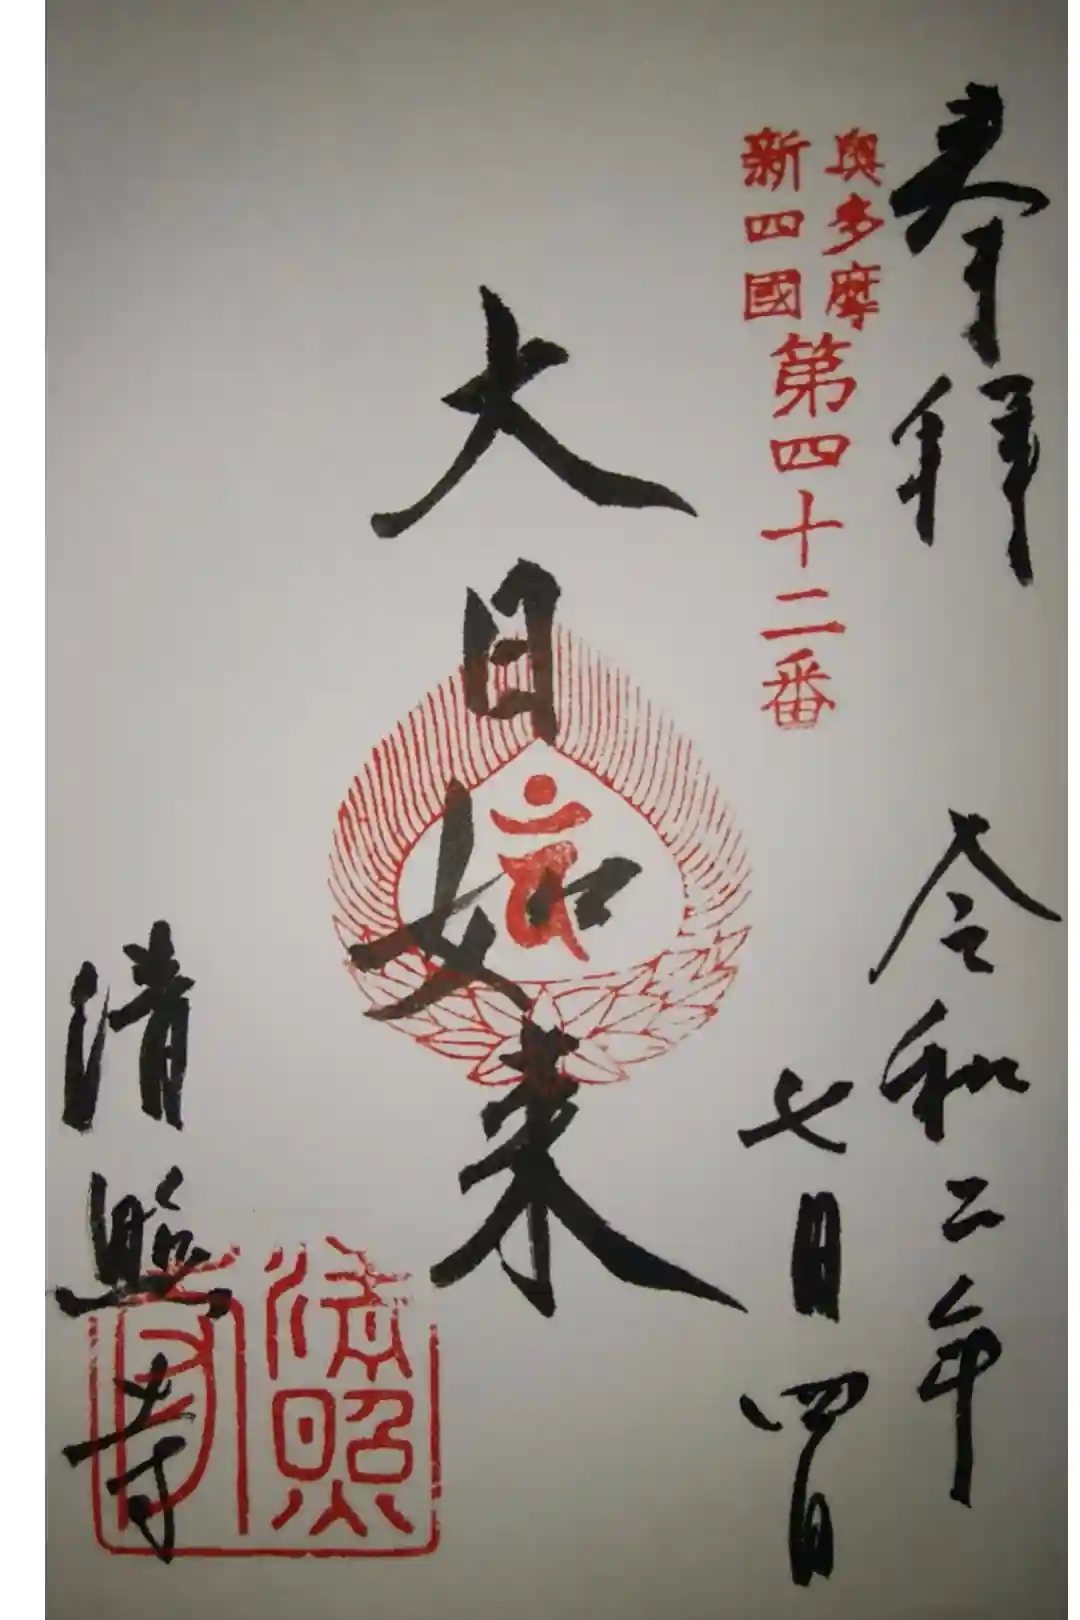 奉拝
奥多摩
新四國
第四十二番
令和二年
七月四日
大日如来
清照寺
清照寺